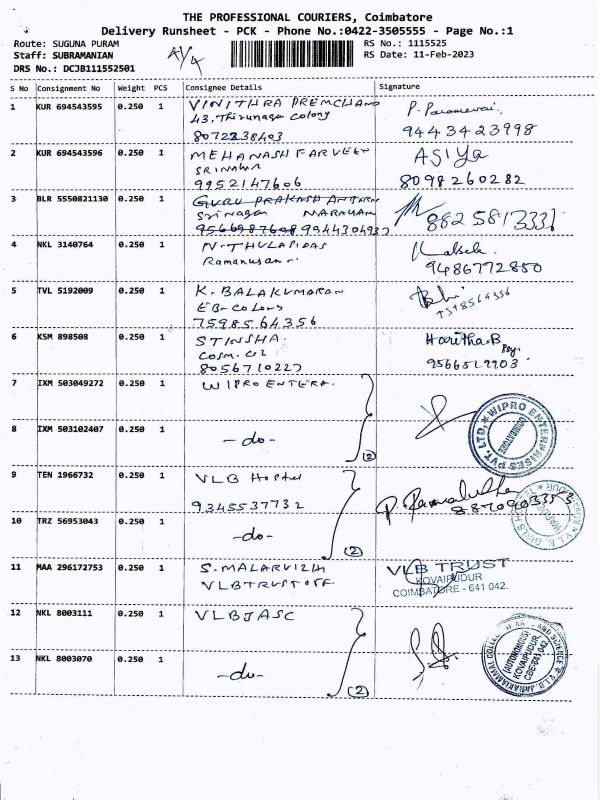 THE PROFESSIONAL COURIERS, Coimbatore
Delivery Runsheet - PCK - Phone No.:0422-3505555 - Page No.:1
Route: SUGUNA PURAM
RS No.: 1115525
Staff: SUBRAMANIAN
RS Date: 11-Feb-2023
DRS No.: DCJB111552501
S No Consignment No Weight PCS Consignee Details Signature
1 KUR 694543595 0.250 1 VINITHRA PREMCHAND
43, Thirunagar Colony
8072238403
9443423998
2 KUR 694543596 0.250 1 MEHANASH FARVEEN Asiya
SRINAGAR
9952147606 8098260282
3 BLR 5550821130 0.250 1 GURU PRAKASH
Srinagar NARAYAN
9566987608 9944304932 8825813331
4 NKL 3140764 0.250 1 N. THULASIDAS
9486772850
5 TVL 5192009 0.250 1 K. BALAKUMARAN
EB-Colony
7598564356 7598564356
6 KSM 898508 0.250 1 STINSHA. Haritha.B
8056710227 9566519903
7 IXM 503049272 0.250 1 WIPRO ENTERR.
8 IXM 503102407 0.250 1 -do- (2)
WIPRO ENTERPRISES PVT. LTD.
9 TEN 1966732 0.250 1 VLB Hostel
9345537732 8870903353
10 TRZ 56953043 0.250 1 -do- (2)
11 MAA 296172753 0.250 1 S. MALARVIZH VLB TRUST
VLB TRUST OFF. KOVAIPUDUR
COIMBATORE - 641 042.
12 NKL 8003111 0.250 1 VLBJASC
13 NKL 8003070 0.250 1 -do- (2)
(AUTONOMOUS)
KOVAIPUDUR
CBE-641 042